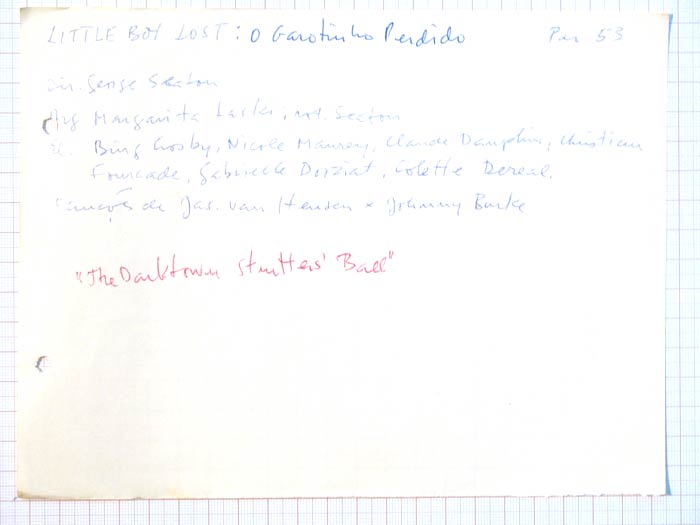 LITTLE BOY LOST: O Garotinho Perdido Par 53
Dir. George Seaton
Arg Margarita Laski; rot. Seaton
El. Bing Crosby, Nicole Maurey, Claude Dauphin, Christian
Fourcade, Gabrielle Dorziat, Colette Dereal.
Canções de Jas. van Heusen x Johnny Burke
"The Darktown Strutters' Ball"